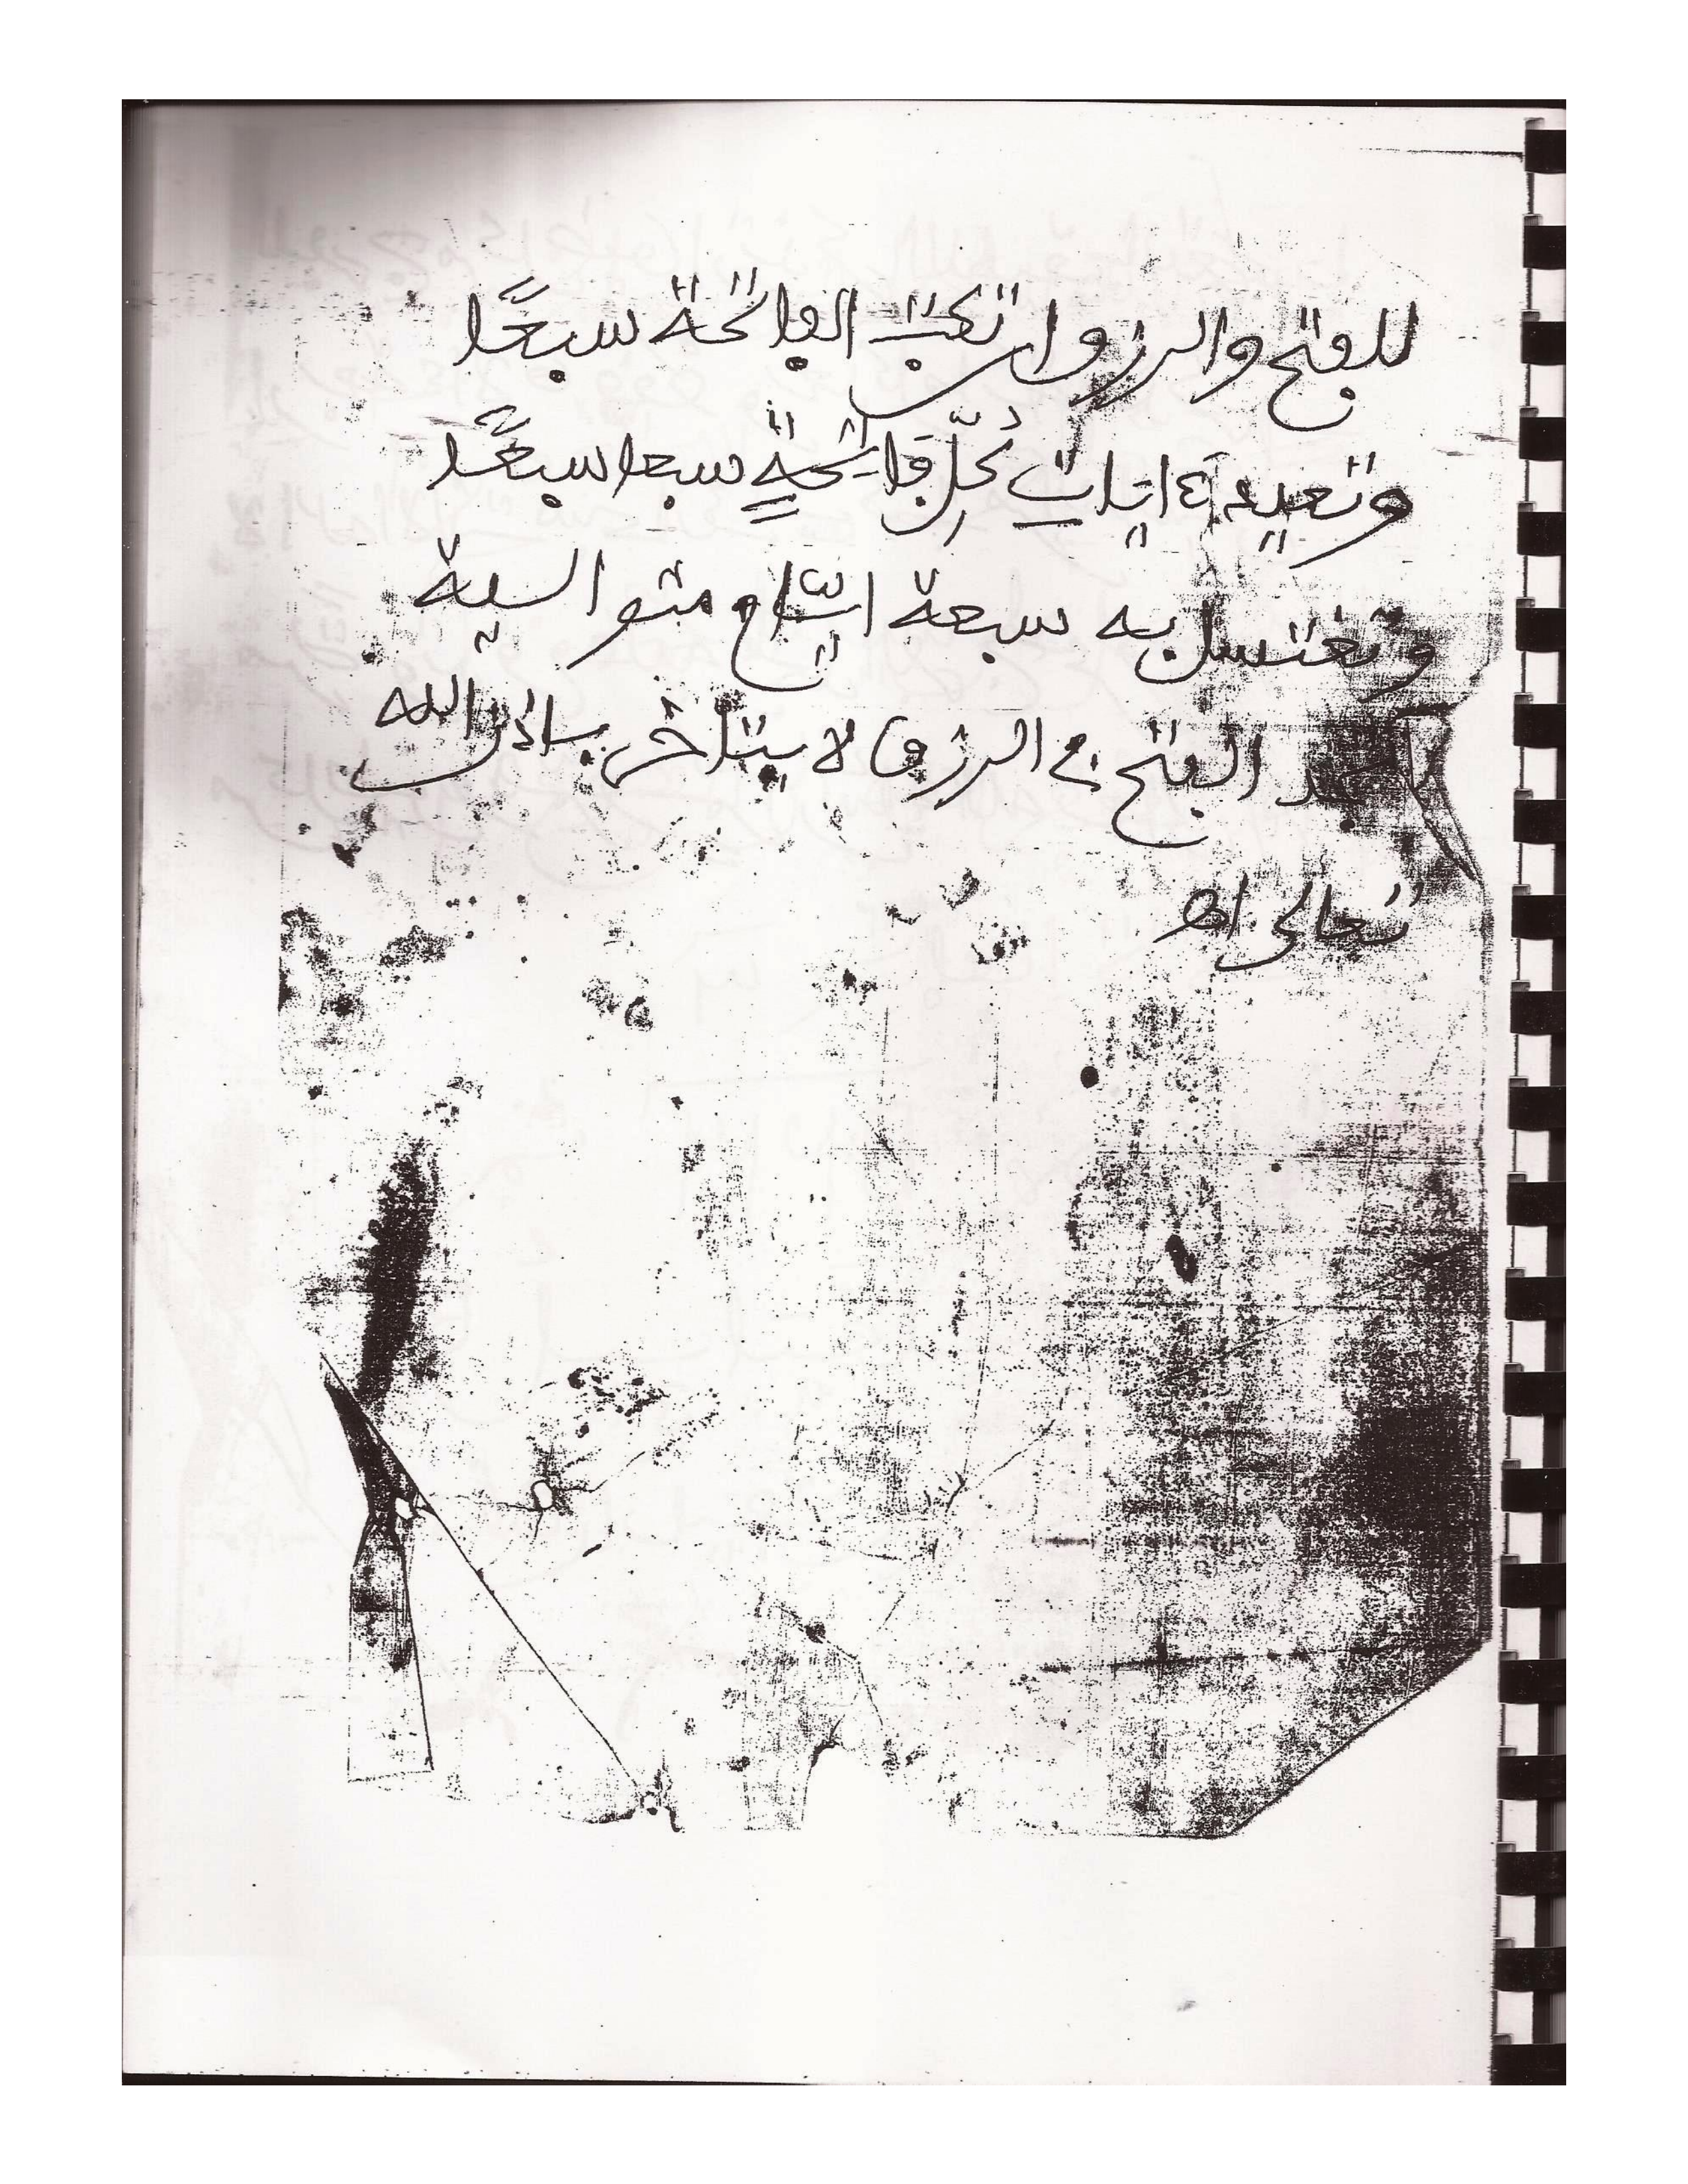 للفتح والرزوان تكتب الفاتحة سبعًا
وتعيد ٤ ايات كلّ فاتحةٍ سبعا سبعًا
وتغتسل به سبعة ايّام متوالية
الفتح في الرزق لا يتأخر باذن الله
تعالى اهـ